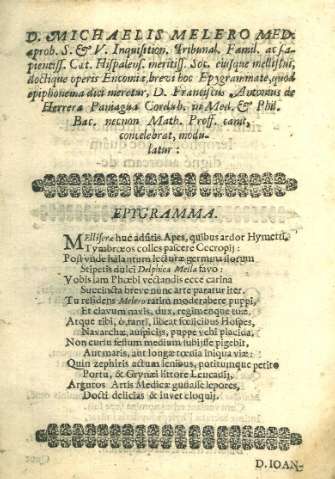 D. MICHAELIS MELERO MED.
aprob. S. & V. Inquisition. Tribunal. Famil. ac sa-
pientiss. Cat. Hispalens. meritiss. Soc. eiusque mellistui,
doctique operis Encomia, brevi hoc Epygrammate, quod
epiphonema dici meretur, D. Franciscus Antonius de
Herrera Paniagua Cordub. in Med. & Phil.
Bac. necnon Math. Proff. canit,
concelebrat, modu-
latur:
EPIGRAMMA.
MEllifera huc adsitis Apes, quibus ardor Hymetti,
Tymbræos colles pascere Cecropij:
Post unde halantum lectura germina florum
Stipetis dulci Delphica Mella favo:
Vobis iam Phœbi vectandis ecce carina
Succincta breve nunc arte paratur iter.
Tu residens Melero ratim moderabere puppi,
Et clavum navis, dux, regimenque tuæ.
Atque tibi, ò, tanti, libeat fœlicibus Hospes,
Navarchæ auspicijs, puppe vehi placida.
Non curiu fessum medium subijsse pigebit,
Aut maris, aut longæ tœdia iniqua viæ:
Quin zephiris actum lenibus, potitumque petito
Portu, & Grynæi littore Leucadij,
Argutos Artis Medicæ gustasse lepores,
Docti delicias & iuvet eloquij.
D. IOAN-